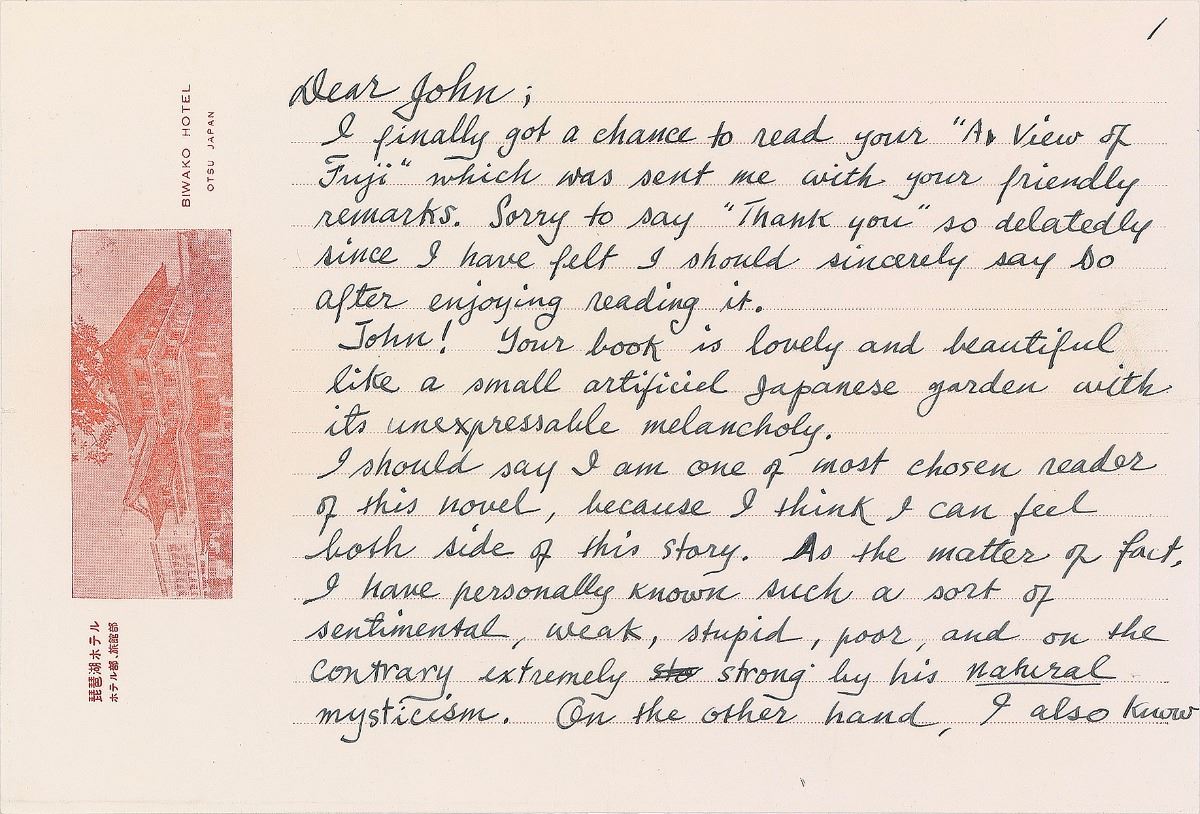 1
BIWAKO HOTEL
OTSU JAPAN
琵琶湖ホテル
ホテル部、旅館部
Dear John;
I finally got a chance to read your "A View of
Fuji" which was sent me with your friendly
remarks. Sorry to say "Thank you" so delatedly
since I have felt I should sincerely say so
after enjoying reading it.
John! Your book is lovely and beautiful
like a small artificiel Japanese garden with
its unexpressable melancholy.
I should say I am one of most chosen reader
of this novel, because I think I can feel
both side of this story. As the matter of fact,
I have personally known such a sort of
sentimental, weak, stupid, poor, and on the
contrary extremely sto strong by his natural
mysticism. On the other hand, I also know